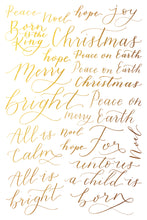 Peace Noel hope Joy
Born is the King Christmas
hope Peace on Earth
Merry Peace on Earth
Christmas
bright Peace on
merry Earth
All is noel For Noel
Calm hope unto us
All is a child is
bright born